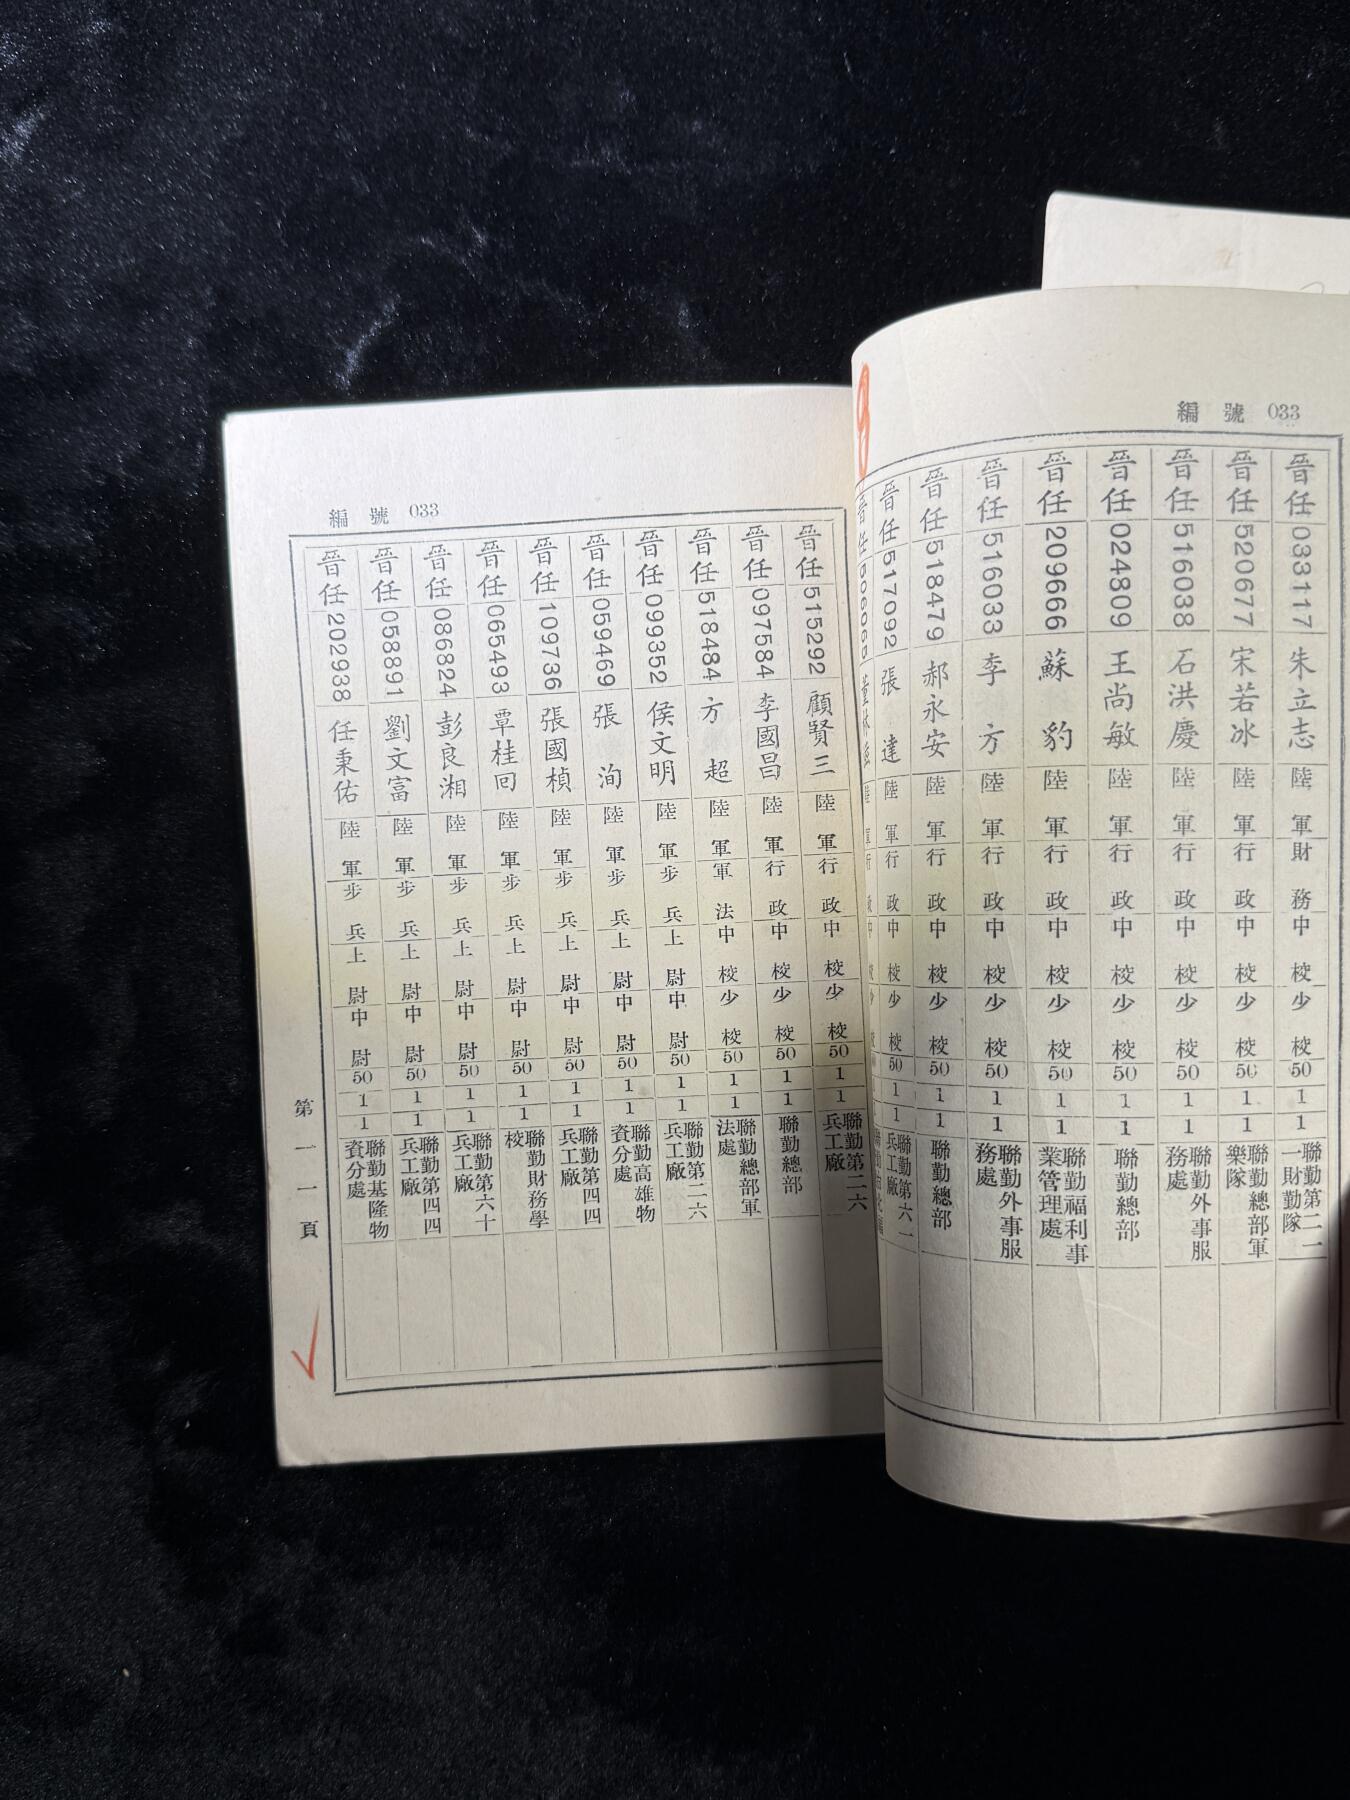 編號 033
晉任 033117 朱立志 陸軍 財務 中校 少校 50 1 1 聯勤第二一一財勤隊
晉任 520677 宋若冰 陸軍 行政 中校 少校 50 1 1 聯勤總部軍樂隊
晉任 516038 石洪慶 陸軍 行政 中校 少校 50 1 1 聯勤外事服務處
晉任 024809 王尚敏 陸軍 行政 中校 少校 50 1 1 聯勤總部
晉任 209666 蘇豹 陸軍 行政 中校 少校 50 1 1 聯勤福利事業管理處
晉任 516033 李方 陸軍 行政 中校 少校 50 1 1 聯勤外事服務處
晉任 518479 郝永安 陸軍 行政 中校 少校 50 1 1 聯勤總部
晉任 517092 張達 陸軍 行政 中校 少校 50 1 1 聯勤第六一兵工廠
晉任 陸軍 行政 中校 少校
編號 033
晉任 515292 顧賢三 陸軍 行政 中校 少校 50 1 1 聯勤第二六兵工廠
晉任 097584 李國昌 陸軍 行政 中校 少校 50 1 1 聯勤總部
晉任 518484 方超 陸軍 軍法 中校 少校 50 1 1 聯勤總部軍法處
晉任 099352 侯文明 陸軍 步兵 上尉 中尉 50 1 1 聯勤第二六兵工廠
晉任 059469 張洵 陸軍 步兵 上尉 中尉 50 1 1 聯勤高雄物資分處
晉任 109736 張國楨 陸軍 步兵 上尉 中尉 50 1 1 聯勤第四四兵工廠
晉任 065493 覃桂回 陸軍 步兵 上尉 中尉 50 1 1 聯勤財務學校
晉任 086824 彭良湘 陸軍 步兵 上尉 中尉 50 1 1 聯勤第六十兵工廠
晉任 058891 劉文富 陸軍 步兵 上尉 中尉 50 1 1 聯勤第四四兵工廠
晉任 202938 任秉佑 陸軍 步兵 上尉 中尉 50 1 1 聯勤基隆物資分處
第一一頁